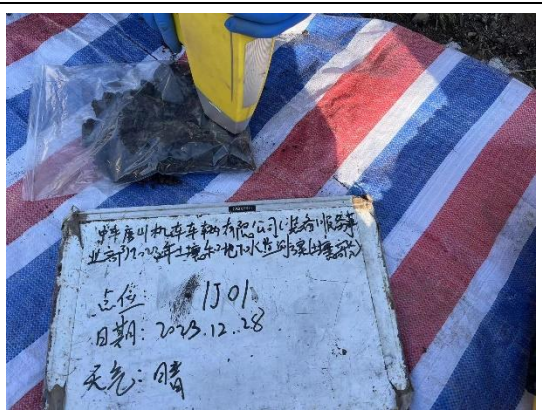 中车唐山机车车辆有限公司(装备服务事
业部)2023年土壤和地下水监测项目土壤
点位 1J01
日期: 2023.12.28
天气: 晴